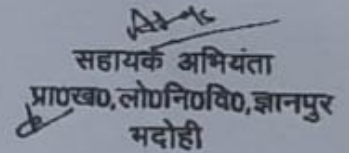 सहायक अभियंता
प्रा0ख0,लो0नि0वि0,ज्ञानपुर
भदोही